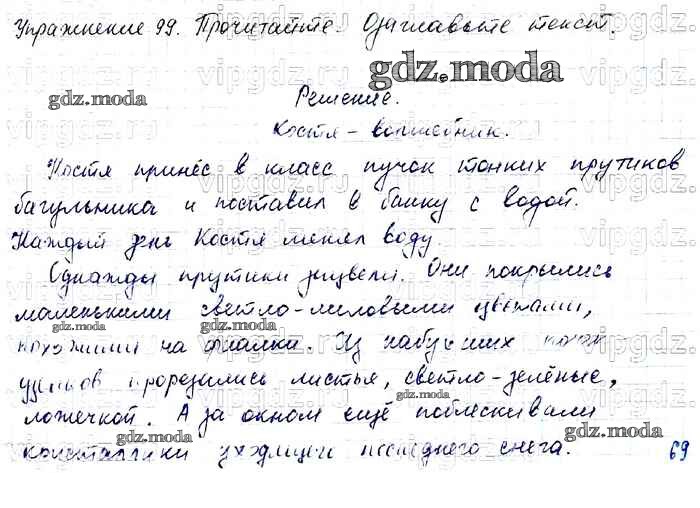 Упражнение 99. Прочитайте. Озаглавьте текст.
Решение.
Костя - волшебник.
Костя принёс в класс пучок тонких прутиков
багульника и поставил в банку с водой.
Каждый день Костя менял воду.
Однажды прутики зацвели. Они покрылись
маленькими светло-лиловыми цветами,
похожими на фиалки. Из набухших почек
прорезались листья, светло-зелёные,
ложечкой. А за окном ещё поблескивали
кристаллики уходящего последнего снега.
69
gdz.moda
gdz.moda
gdz.moda
gdz.moda
gdz.moda
gdz.moda
gdz.moda